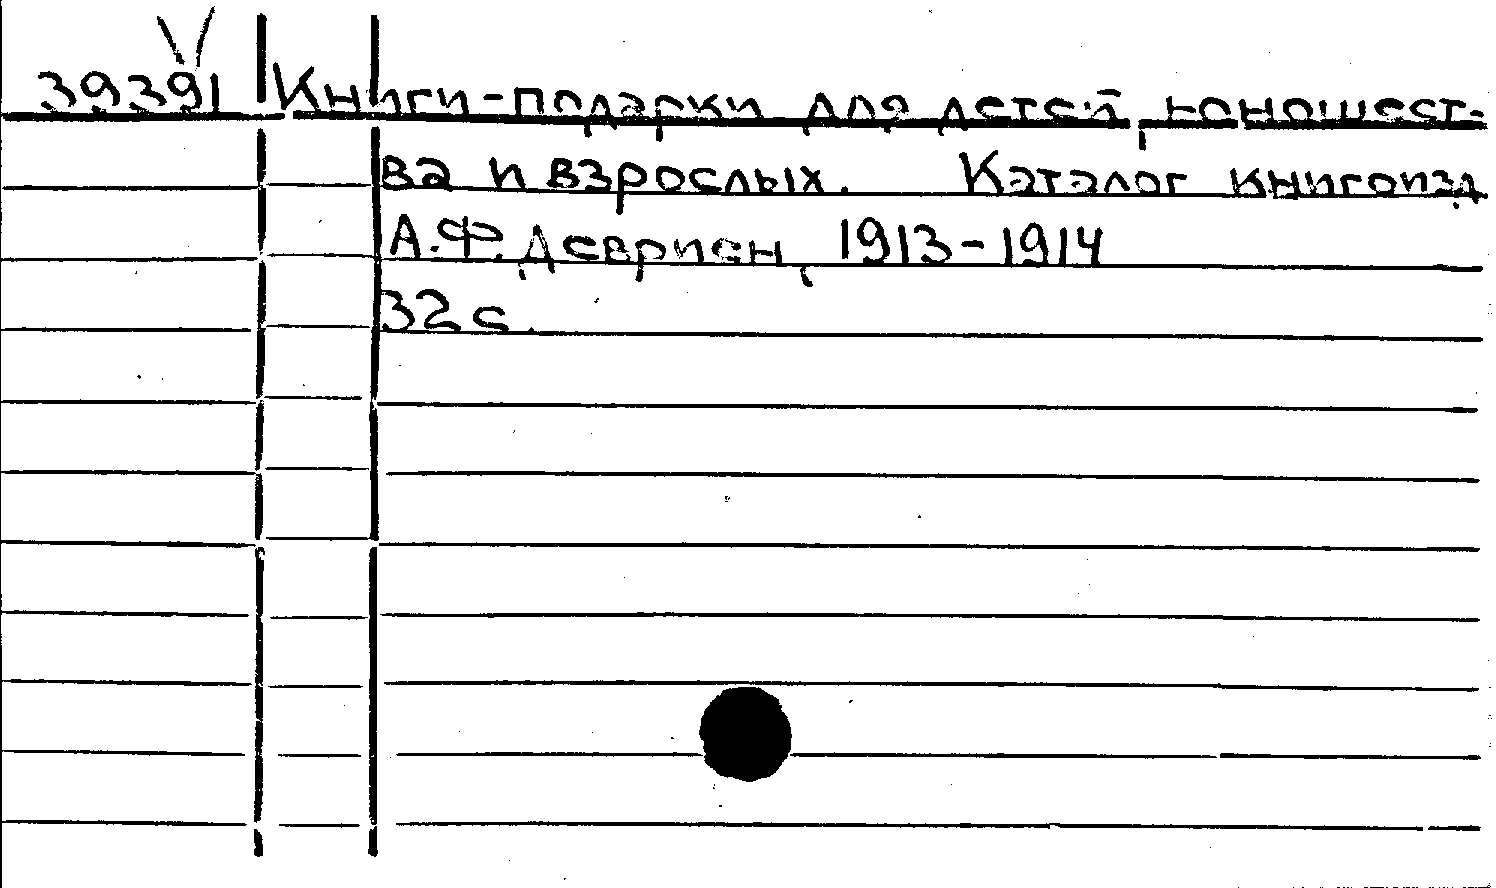 39391 Книги-подарки для детей, юношест-
ва и взрослых. Каталог книгоизд
А.Ф. Девриен, 1913-1914
32 с.